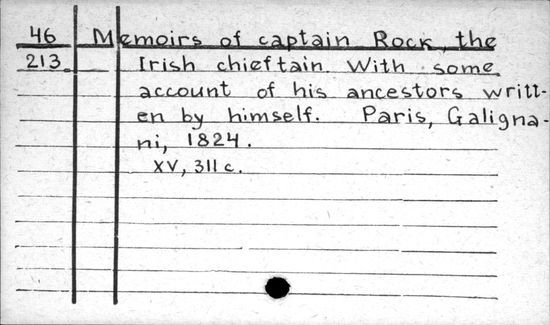 46 Memoirs of captain Rock, the
213 Irish chieftain. With some
account of his ancestors writt-
en by himself. Paris, Galigna-
ni, 1824.
XV, 311 c.